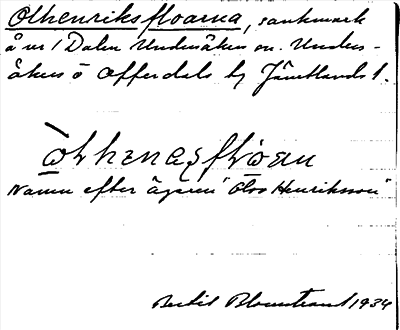 Olhenriksfloarna, sankmark
å nr 1 Dalen Undersåkers sn. Unders-
åkers o Offerdals tg Jämtlands l.
òlhenəsflòan
Namn efter ägaren "Olov Henriksson"
Bertil Blomstrand 1934